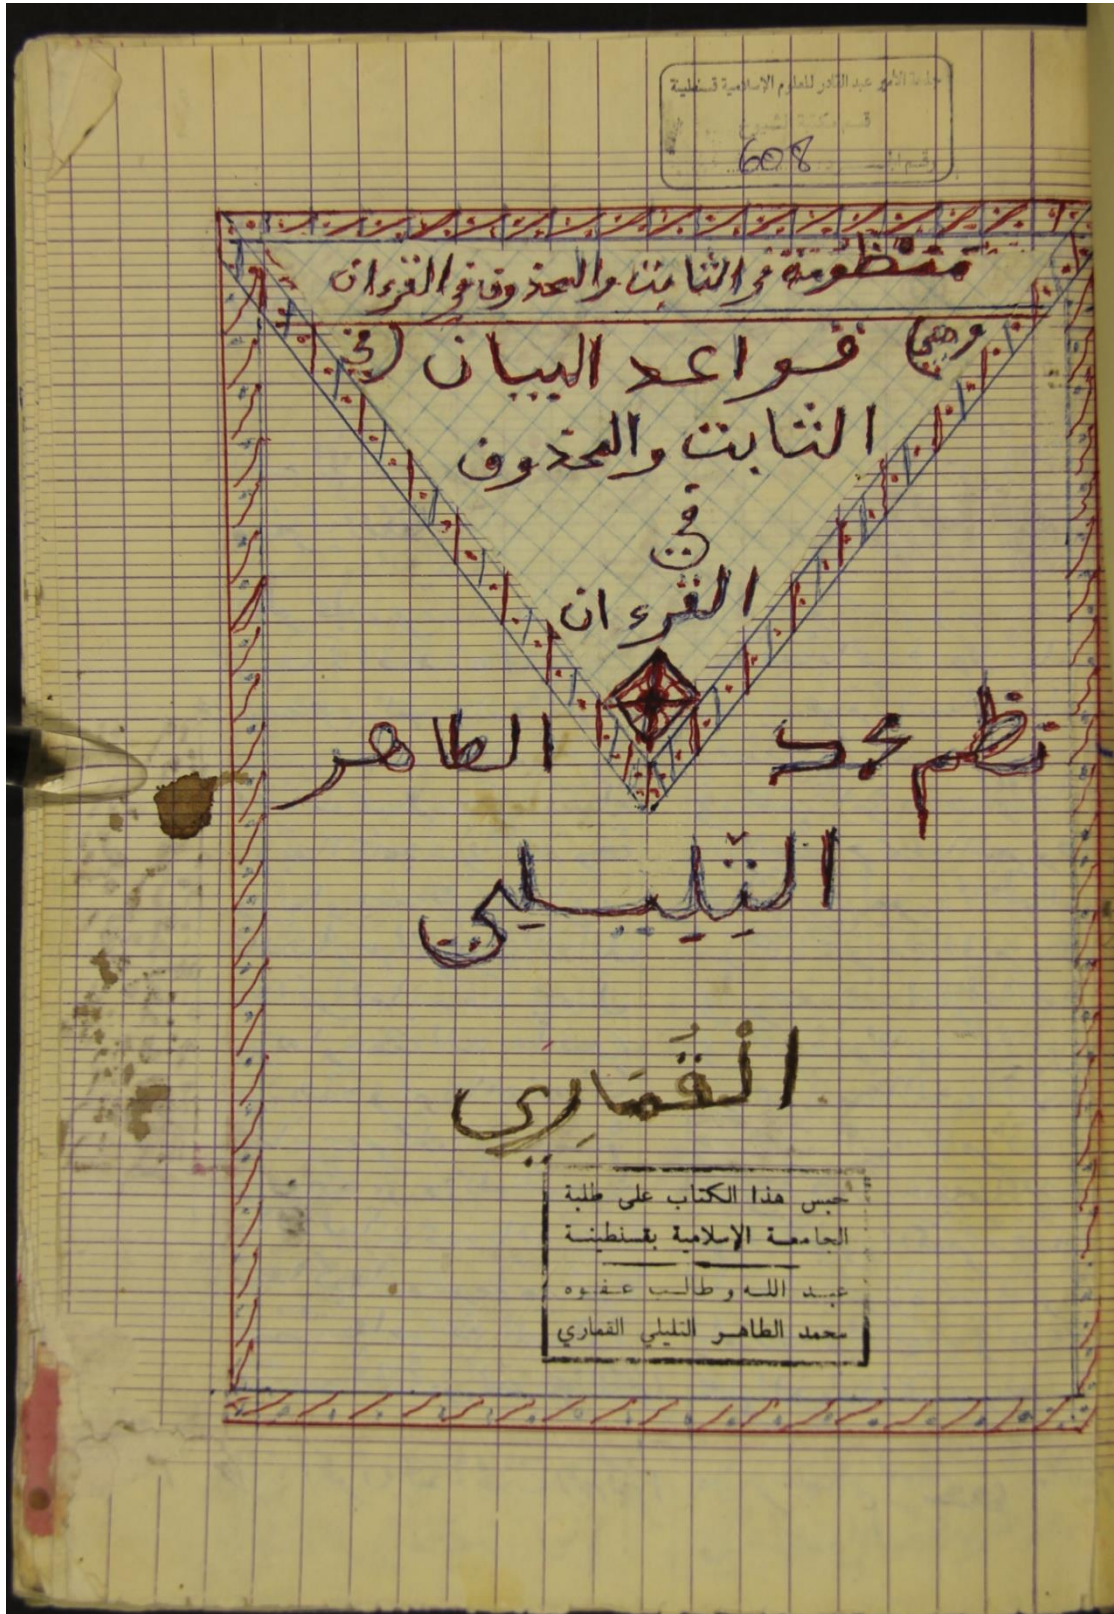 جامعة الأمير عبد القادر للعلوم الإسلامية قسنطينة
قسم مكتبة الشيوخ
608
منظومة في الثابت والمحذوف في القرءان
(وهي) قواعد البيان (في)
الثابت والمحذوف
في
القرءان
نظم محمد الطاهر
التّلِيلي
الْقُمَارِي
حبس هذا الكتاب على طلبة
الجامعة الإسلامية بقسنطينة
عبد الله وطالب عفوه
محمد الطاهر التليلي القماري